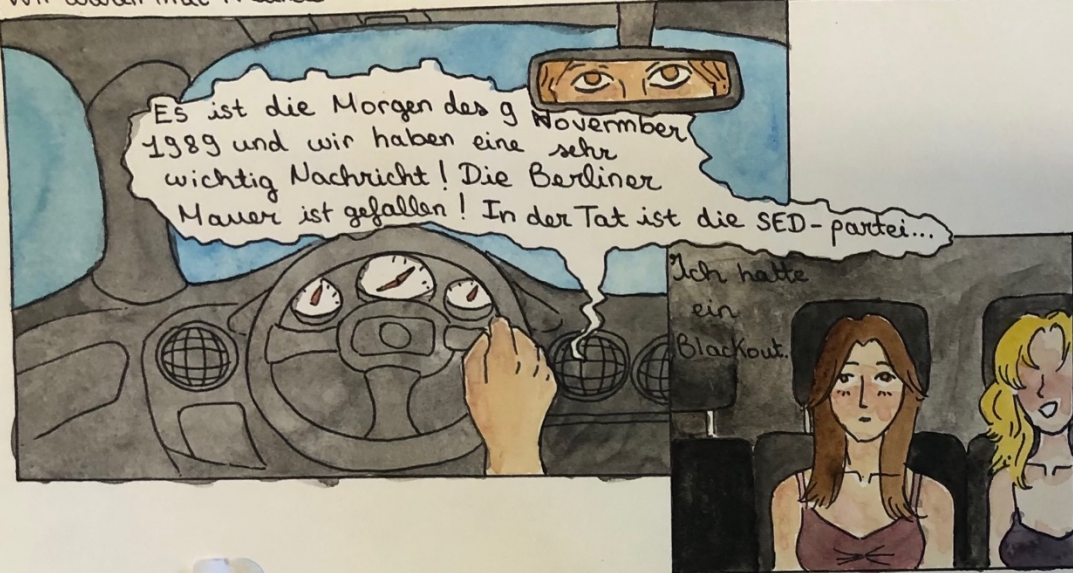 Es ist die Morgen des 9 Novermber
1989 und wir haben eine sehr
wichtig Nachricht! Die Berliner
Mauer ist gefallen! In der Tat ist die SED-partei...
Ich hatte
ein
Blackout.